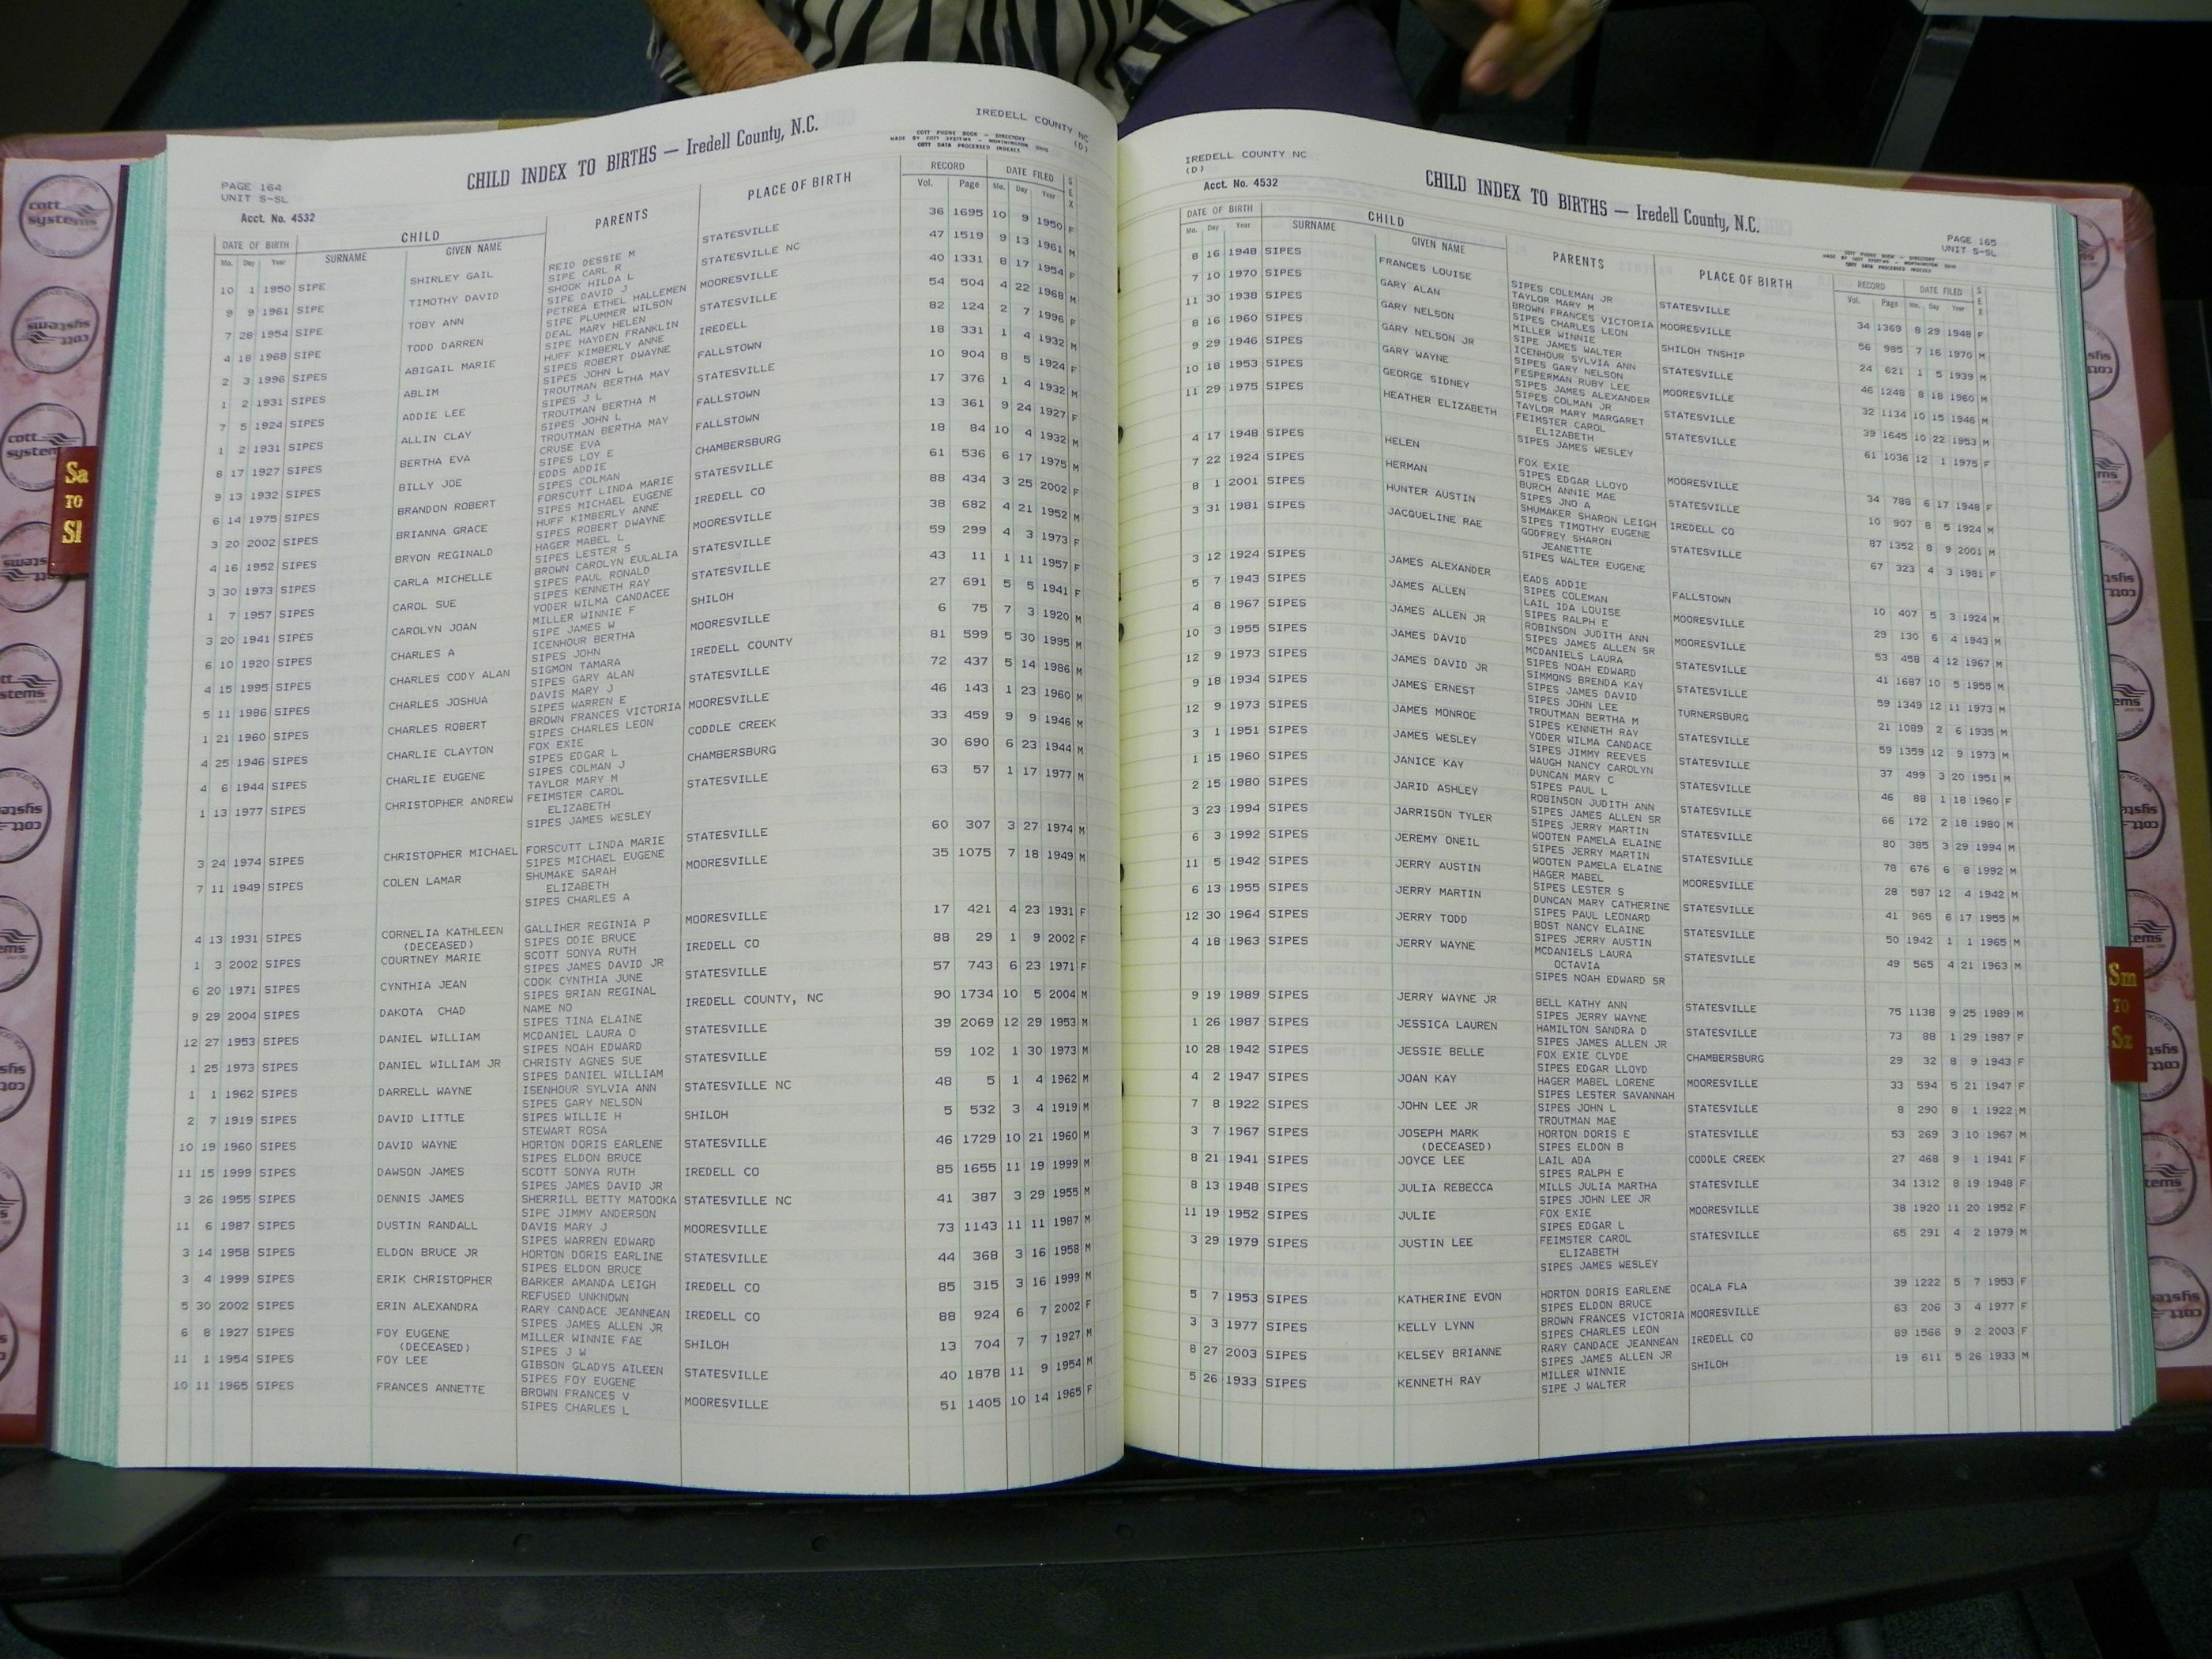 cott systems
Sa TO Sl
PAGE 164
UNIT S-SL
Acct. No. 4532
CHILD INDEX TO BIRTHS — Iredell County, N.C.
IREDELL COUNTY NC
(D)
COTT PHONE BOOK — DIRECTORY
MADE BY COTT SYSTEMS — WORTHINGTON OHIO
COTT DATA PROCESSED INDEXES
DATE OF BIRTH CHILD PARENTS PLACE OF BIRTH RECORD DATE FILED SEX
Mo. Day Year SURNAME GIVEN NAME Vol. Page Mo. Day Year
10 1 1950 SIPE SHIRLEY GAIL REID DESSIE M STATESVILLE 36 1695 10 9 1950 F
SIPE CARL R
9 9 1961 SIPE TIMOTHY DAVID SHOOK HILDA L STATESVILLE NC 47 1519 9 13 1961 M
SIPE DAVID J
7 28 1954 SIPE TOBY ANN PETREA ETHEL HALLEMEN MOORESVILLE 40 1331 8 17 1954 F
SIPE PLUMMER WILSON
4 18 1968 SIPE TODD DARREN DEAL MARY HELEN STATESVILLE 54 504 4 22 1968 M
SIPE HAYDEN FRANKLIN
2 3 1996 SIPES ABIGAIL MARIE HUFF KIMBERLY ANNE IREDELL 82 124 2 7 1996 F
SIPES ROBERT DWAYNE
1 2 1931 SIPES ABLIM SIPES JOHN L FALLSTOWN 18 331 1 4 1932 M
TROUTMAN BERTHA MAY
7 5 1924 SIPES ADDIE LEE SIPES J L STATESVILLE 10 904 8 5 1924 F
TROUTMAN BERTHA M
1 2 1931 SIPES ALLIN CLAY SIPES JOHN L FALLSTOWN 17 376 1 4 1932 M
TROUTMAN BERTHA MAY
8 17 1927 SIPES BERTHA EVA CRUSE EVA FALLSTOWN 13 361 9 24 1927 F
SIPES LOY E
9 13 1932 SIPES BILLY JOE EDDS ADDIE CHAMBERSBURG 18 84 10 4 1932 M
SIPES COLMAN
6 14 1975 SIPES BRANDON ROBERT FORSCUTT LINDA MARIE STATESVILLE 61 536 6 17 1975 M
SIPES MICHAEL EUGENE
3 20 2002 SIPES BRIANNA GRACE HUFF KIMBERLY ANNE IREDELL CO 88 434 3 25 2002 F
SIPES ROBERT DWAYNE
4 16 1952 SIPES BRYON REGINALD HAGER MABEL L MOORESVILLE 38 682 4 21 1952 M
SIPES LESTER S
3 30 1973 SIPES CARLA MICHELLE BROWN CAROLYN EULALIA STATESVILLE 59 299 4 3 1973 F
SIPES PAUL RONALD
1 7 1957 SIPES CAROL SUE SIPES KENNETH RAY STATESVILLE 43 11 1 11 1957 F
YODER WILMA CANDACEE
3 20 1941 SIPES CAROLYN JOAN MILLER WINNIE F SHILOH 27 691 5 5 1941 F
SIPE JAMES W
6 10 1920 SIPES CHARLES A ICENHOUR BERTHA MOORESVILLE 6 75 7 3 1920 M
SIPES JOHN
4 15 1995 SIPES CHARLES CODY ALAN SIGMON TAMARA IREDELL COUNTY 81 599 5 30 1995 M
SIPES GARY ALAN
5 11 1986 SIPES CHARLES JOSHUA DAVIS MARY J STATESVILLE 72 437 5 14 1986 M
SIPES WARREN E
1 21 1960 SIPES CHARLES ROBERT BROWN FRANCES VICTORIA MOORESVILLE 46 143 1 23 1960 M
SIPES CHARLES LEON
4 25 1946 SIPES CHARLIE CLAYTON FOX EXIE CODDLE CREEK 33 459 9 9 1946 M
SIPES EDGAR L
4 6 1944 SIPES CHARLIE EUGENE SIPES COLMAN J CHAMBERSBURG 30 690 6 23 1944 M
TAYLOR MARY M
1 13 1977 SIPES CHRISTOPHER ANDREW FEIMSTER CAROL STATESVILLE 63 57 1 17 1977 M
ELIZABETH
SIPES JAMES WESLEY
3 24 1974 SIPES CHRISTOPHER MICHAEL FORSCUTT LINDA MARIE STATESVILLE 60 307 3 27 1974 M
SIPES MICHAEL EUGENE
7 11 1949 SIPES COLEN LAMAR SHUMAKE SARAH MOORESVILLE 35 1075 7 18 1949 M
ELIZABETH
SIPES CHARLES A
4 13 1931 SIPES CORNELIA KATHLEEN GALLIHER REGINIA P MOORESVILLE 17 421 4 23 1931 F
(DECEASED) SIPES ODIE BRUCE
1 3 2002 SIPES COURTNEY MARIE SCOTT SONYA RUTH IREDELL CO 88 29 1 9 2002 F
SIPES JAMES DAVID JR
6 20 1971 SIPES CYNTHIA JEAN COOK CYNTHIA JUNE STATESVILLE 57 743 6 23 1971 F
SIPES BRIAN REGINAL
9 29 2004 SIPES DAKOTA CHAD NAME NO IREDELL COUNTY, NC 90 1734 10 5 2004 M
SIPES TINA ELAINE
12 27 1953 SIPES DANIEL WILLIAM MCDANIEL LAURA O STATESVILLE 39 2069 12 29 1953 M
SIPES NOAH EDWARD
1 25 1973 SIPES DANIEL WILLIAM JR CHRISTY AGNES SUE STATESVILLE 59 102 1 30 1973 M
SIPES DANIEL WILLIAM
1 1 1962 SIPES DARRELL WAYNE ISENHOUR SYLVIA ANN STATESVILLE NC 48 5 1 4 1962 M
SIPES GARY NELSON
2 7 1919 SIPES DAVID LITTLE SIPES WILLIE H SHILOH 5 532 3 4 1919 M
STEWART ROSA
10 19 1960 SIPES DAVID WAYNE HORTON DORIS EARLENE STATESVILLE 46 1729 10 21 1960 M
SIPES ELDON BRUCE
11 15 1999 SIPES DAWSON JAMES SCOTT SONYA RUTH IREDELL CO 85 1655 11 19 1999 M
SIPES JAMES DAVID JR
3 26 1955 SIPES DENNIS JAMES SHERRILL BETTY MATOOKA STATESVILLE NC 41 387 3 29 1955 M
SIPE JIMMY ANDERSON
11 6 1987 SIPES DUSTIN RANDALL DAVIS MARY J MOORESVILLE 73 1143 11 11 1987 M
SIPES WARREN EDWARD
3 14 1958 SIPES ELDON BRUCE JR HORTON DORIS EARLINE STATESVILLE 44 368 3 16 1958 M
SIPES ELDON BRUCE
3 4 1999 SIPES ERIK CHRISTOPHER BARKER AMANDA LEIGH IREDELL CO 85 315 3 16 1999 M
REFUSED UNKNOWN
5 30 2002 SIPES ERIN ALEXANDRA RARY CANDACE JEANNEAN IREDELL CO 88 924 6 7 2002 F
SIPES JAMES ALLEN JR
6 8 1927 SIPES FOY EUGENE MILLER WINNIE FAE SHILOH 13 704 7 7 1927 M
(DECEASED) SIPES J W
11 1 1954 SIPES FOY LEE GIBSON GLADYS AILEEN STATESVILLE 40 1878 11 9 1954 M
SIPES FOY EUGENE
10 11 1965 SIPES FRANCES ANNETTE BROWN FRANCES V MOORESVILLE 51 1405 10 14 1965 F
SIPES CHARLES L
IREDELL COUNTY NC
(D)
Acct. No. 4532
CHILD INDEX TO BIRTHS — Iredell County, N.C.
PAGE 165
UNIT S-SL
COTT PHONE BOOK — DIRECTORY
MADE BY COTT SYSTEMS — WORTHINGTON OHIO
COTT DATA PROCESSED INDEXES
DATE OF BIRTH CHILD PARENTS PLACE OF BIRTH RECORD DATE FILED SEX
Mo. Day Year SURNAME GIVEN NAME Vol. Page Mo. Day Year
8 16 1948 SIPES FRANCES LOUISE SIPES COLEMAN JR STATESVILLE 34 1369 8 29 1948 F
TAYLOR MARY M
7 10 1970 SIPES GARY ALAN BROWN FRANCES VICTORIA MOORESVILLE 56 985 7 16 1970 M
SIPES CHARLES LEON
11 30 1938 SIPES GARY NELSON MILLER WINNIE SHILOH TNSHIP 24 621 1 5 1939 M
SIPE JAMES WALTER
8 16 1960 SIPES GARY NELSON JR ICENHOUR SYLVIA ANN STATESVILLE 46 1248 8 18 1960 M
SIPES GARY NELSON
9 29 1946 SIPES GARY WAYNE FESPERMAN RUBY LEE MOORESVILLE 32 1134 10 15 1946 M
SIPES JAMES ALEXANDER
10 18 1953 SIPES GEORGE SIDNEY SIPES COLMAN JR STATESVILLE 39 1645 10 22 1953 M
TAYLOR MARY MARGARET
11 29 1975 SIPES HEATHER ELIZABETH FEIMSTER CAROL STATESVILLE 61 1036 12 1 1975 F
ELIZABETH
SIPES JAMES WESLEY
4 17 1948 SIPES HELEN FOX EXIE MOORESVILLE 34 788 6 17 1948 F
SIPES EDGAR LLOYD
7 22 1924 SIPES HERMAN BURCH ANNIE MAE STATESVILLE 10 907 8 5 1924 M
SIPES JNO A
8 1 2001 SIPES HUNTER AUSTIN SHUMAKER SHARON LEIGH IREDELL CO 87 1352 8 9 2001 M
SIPES TIMOTHY EUGENE
3 31 1981 SIPES JACQUELINE RAE GODFREY SHARON STATESVILLE 67 323 4 3 1981 F
JEANETTE
SIPES WALTER EUGENE
3 12 1924 SIPES JAMES ALEXANDER EADS ADDIE FALLSTOWN 10 407 5 3 1924 M
SIPES COLEMAN
5 7 1943 SIPES JAMES ALLEN LAIL IDA LOUISE MOORESVILLE 29 130 6 4 1943 M
SIPES RALPH E
4 8 1967 SIPES JAMES ALLEN JR ROBINSON JUDITH ANN MOORESVILLE 53 458 4 12 1967 M
SIPES JAMES ALLEN SR
10 3 1955 SIPES JAMES DAVID MCDANIELS LAURA STATESVILLE 41 1687 10 5 1955 M
SIPES NOAH EDWARD
12 9 1973 SIPES JAMES DAVID JR SIMMONS BRENDA KAY STATESVILLE 59 1349 12 11 1973 M
SIPES JAMES DAVID
9 18 1934 SIPES JAMES ERNEST SIPES JOHN LEE TURNERSBURG 21 1089 2 6 1935 M
TROUTMAN BERTHA M
12 9 1973 SIPES JAMES MONROE SIPES KENNETH RAY STATESVILLE 59 1359 12 9 1973 M
YODER WILMA CANDACE
3 1 1951 SIPES JAMES WESLEY SIPES JIMMY REEVES STATESVILLE 37 499 3 20 1951 M
WAUGH NANCY CAROLYN
1 15 1960 SIPES JANICE KAY DUNCAN MARY C STATESVILLE 46 88 1 18 1960 F
SIPES PAUL L
2 15 1980 SIPES JARID ASHLEY ROBINSON JUDITH ANN STATESVILLE 66 172 2 18 1980 M
SIPES JAMES ALLEN SR
3 23 1994 SIPES JARRISON TYLER SIPES JERRY MARTIN STATESVILLE 80 385 3 29 1994 M
WOOTEN PAMELA ELAINE
6 3 1992 SIPES JEREMY ONEIL SIPES JERRY MARTIN STATESVILLE 78 676 6 8 1992 M
WOOTEN PAMELA ELAINE
11 5 1942 SIPES JERRY AUSTIN HAGER MABEL MOORESVILLE 28 587 12 4 1942 M
SIPES LESTER S
6 13 1955 SIPES JERRY MARTIN DUNCAN MARY CATHERINE STATESVILLE 41 965 6 17 1955 M
SIPES PAUL LEONARD
12 30 1964 SIPES JERRY TODD BOST NANCY ELAINE STATESVILLE 50 1942 1 1 1965 M
SIPES JERRY AUSTIN
4 18 1963 SIPES JERRY WAYNE MCDANIELS LAURA STATESVILLE 49 565 4 21 1963 M
OCTAVIA
SIPES NOAH EDWARD SR
9 19 1989 SIPES JERRY WAYNE JR BELL KATHY ANN STATESVILLE 75 1138 9 25 1989 M
SIPES JERRY WAYNE
1 26 1987 SIPES JESSICA LAUREN HAMILTON SANDRA D STATESVILLE 73 88 1 29 1987 F
SIPES JAMES ALLEN JR
10 28 1942 SIPES JESSIE BELLE FOX EXIE CLYDE CHAMBERSBURG 29 32 8 9 1943 F
SIPES EDGAR LLOYD
4 2 1947 SIPES JOAN KAY HAGER MABEL LORENE MOORESVILLE 33 594 5 21 1947 F
SIPES LESTER SAVANNAH
7 8 1922 SIPES JOHN LEE JR SIPES JOHN L STATESVILLE 8 290 8 1 1922 M
TROUTMAN MAE
3 7 1967 SIPES JOSEPH MARK HORTON DORIS E STATESVILLE 53 269 3 10 1967 M
(DECEASED) SIPES ELDON B
8 21 1941 SIPES JOYCE LEE LAIL ADA CODDLE CREEK 27 468 9 1 1941 F
SIPES RALPH E
8 13 1948 SIPES JULIA REBECCA MILLS JULIA MARTHA STATESVILLE 34 1312 8 19 1948 F
SIPES JOHN LEE JR
11 19 1952 SIPES JULIE FOX EXIE MOORESVILLE 38 1920 11 20 1952 F
SIPES EDGAR L
3 29 1979 SIPES JUSTIN LEE FEIMSTER CAROL STATESVILLE 65 291 4 2 1979 M
ELIZABETH
SIPES JAMES WESLEY
5 7 1953 SIPES KATHERINE EVON HORTON DORIS EARLENE OCALA FLA 39 1222 5 7 1953 F
SIPES ELDON BRUCE
3 3 1977 SIPES KELLY LYNN BROWN FRANCES VICTORIA MOORESVILLE 63 206 3 4 1977 F
SIPES CHARLES LEON
8 27 2003 SIPES KELSEY BRIANNE RARY CANDACE JEANNEAN IREDELL CO 89 1566 9 2 2003 F
SIPES JAMES ALLEN JR
5 26 1933 SIPES KENNETH RAY MILLER WINNIE SHILOH 19 611 5 26 1933 M
SIPE J WALTER
Sm TO Sz